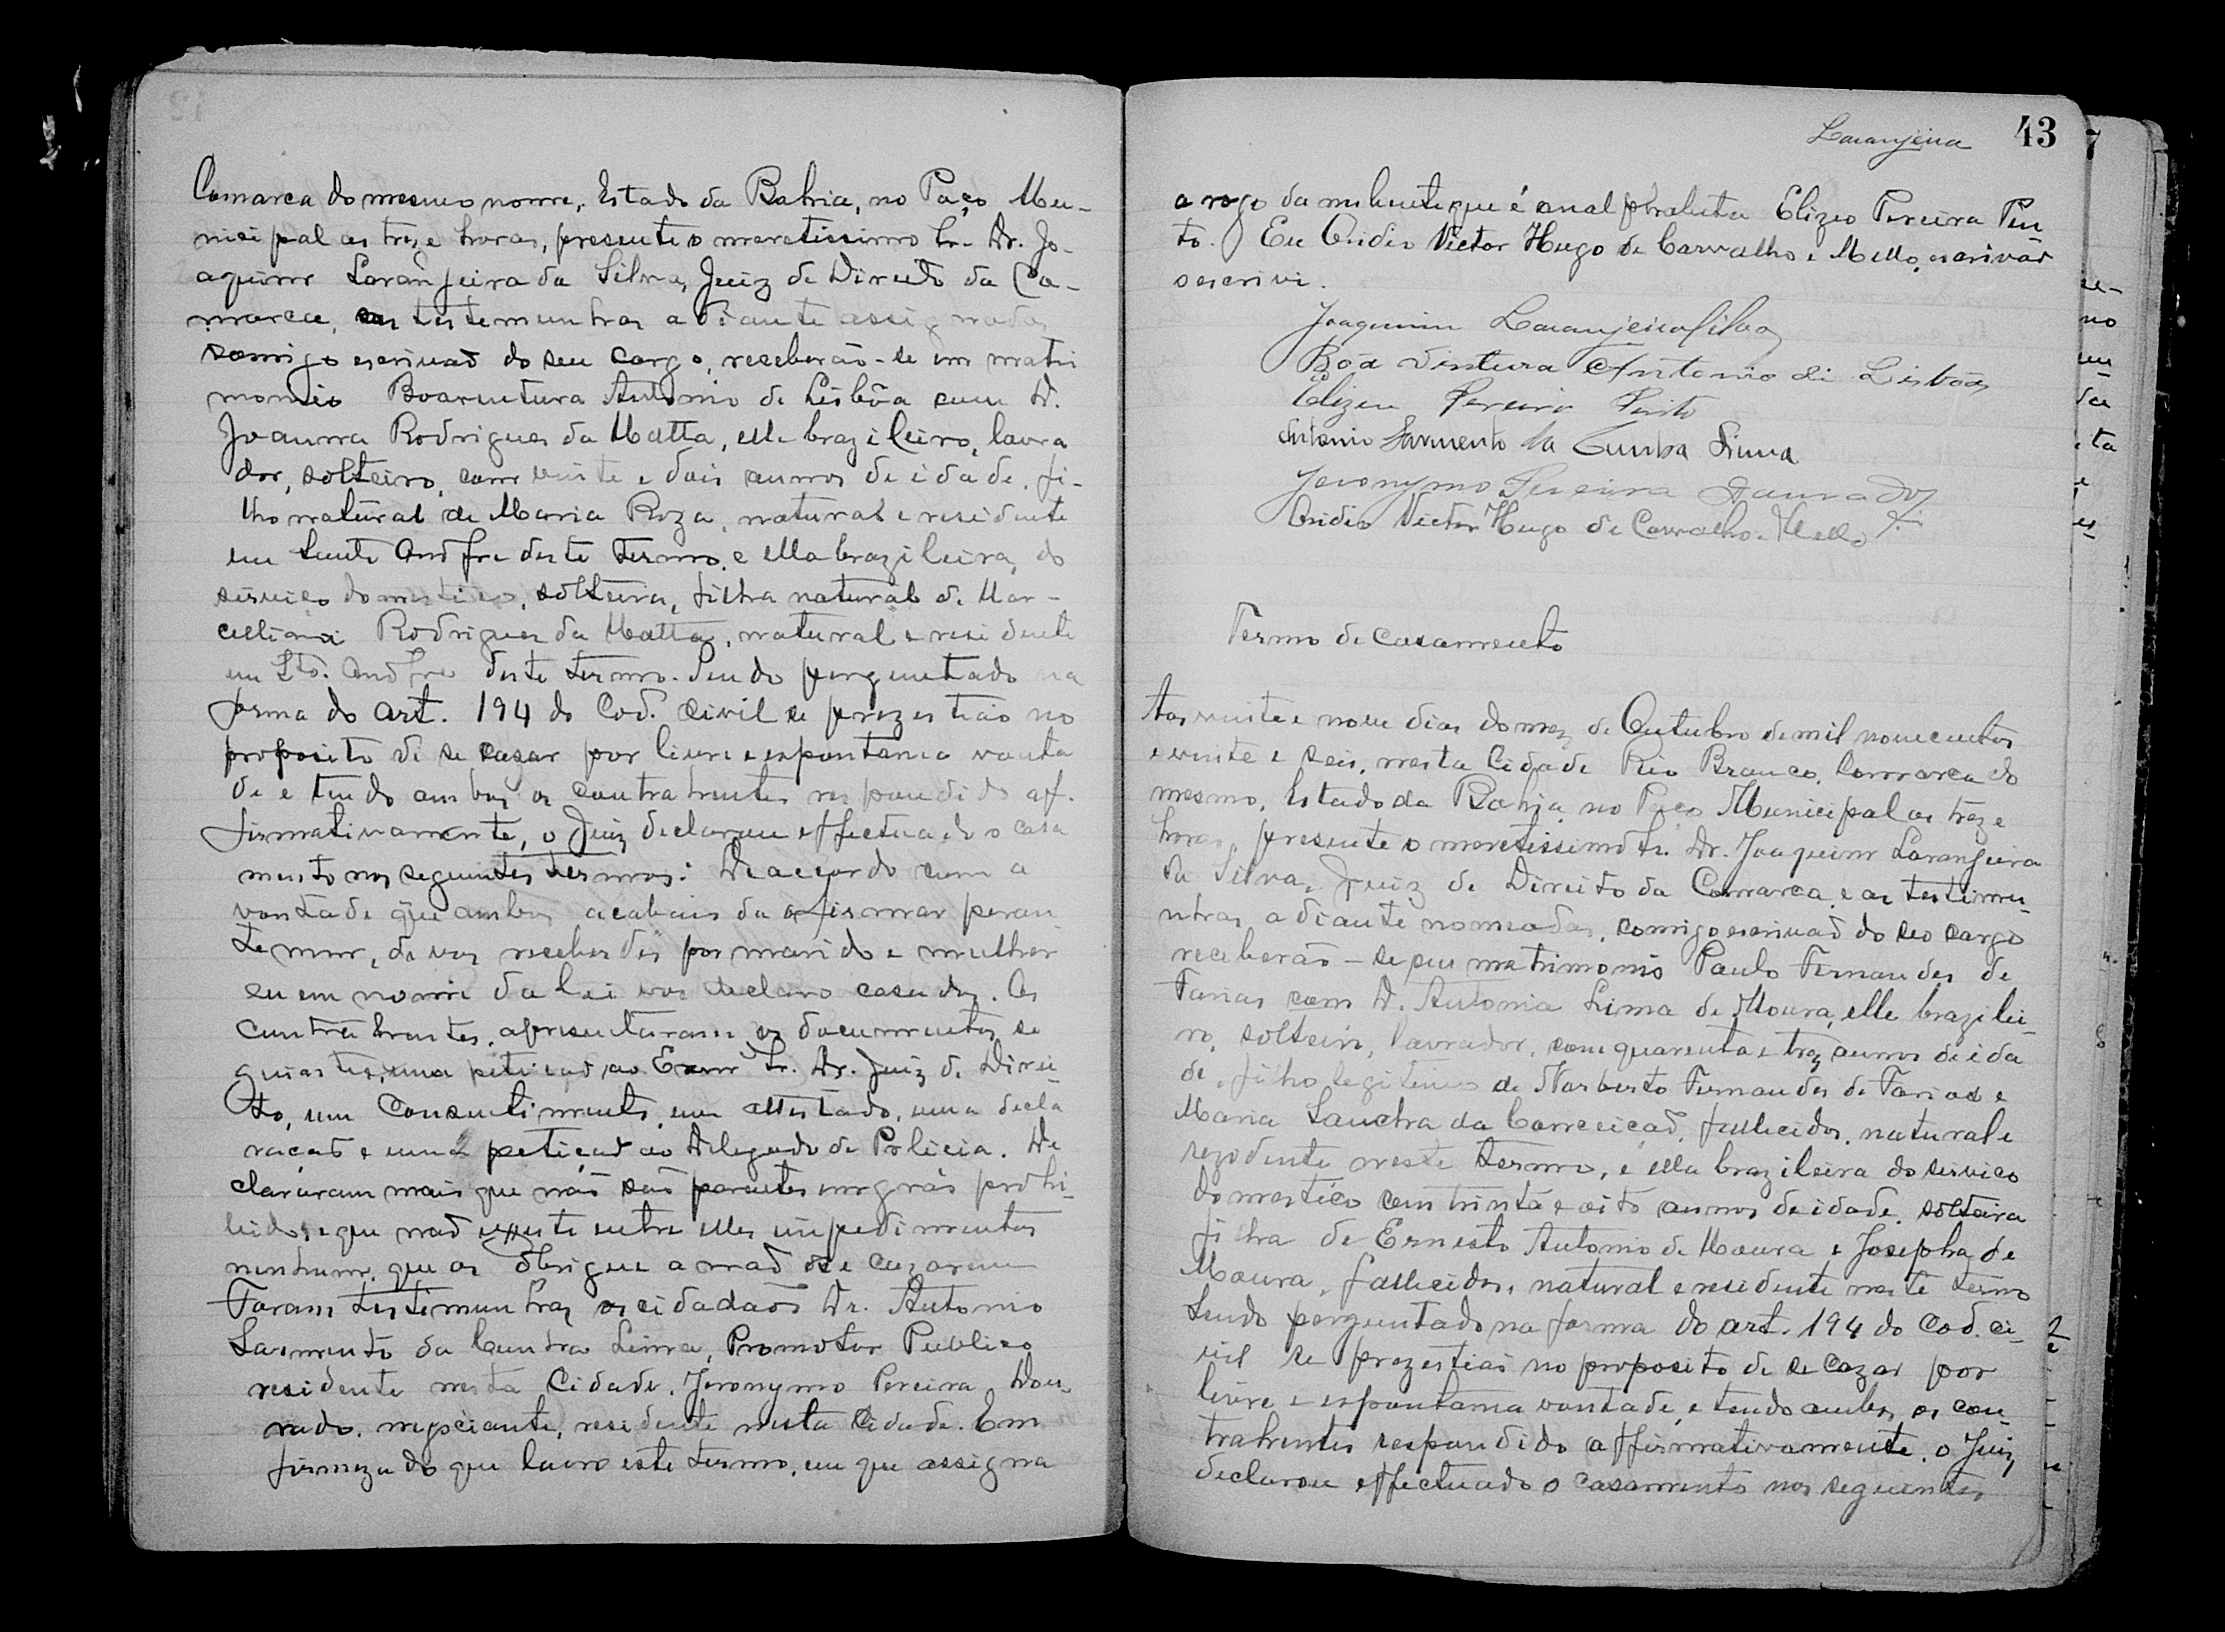 Comarca do mesmo nome, Estado da Bahia, no Paço Mu-
nicipal as treze horas, presente o meretissimo Sr. Dr. Jo-
aquim Laranjeira da Silva, Juiz de Direito da Co-
marca, as testemunhas adiante assignadas
comigo escrivaõ do seu cargo, receberão-se em matri
monio Boaventura Antonio de Lisbôa com D.
Joanna Rodrigues da Matta, elle brazileiro, lavra
dor, solteiro, com vinte e dois annos de idade, fi-
lho natural de Maria Roza, natural e residente
em Santo André deste termo, e ella brazileira, do
serviço domestico, solteira, filha natural de Mar-
celliana Rodrigues da Matta, natural e residente
em Sto. André deste termo. Sendo perguntado na
forma do art. 194 do Cod. Civil se prezestião no
proposito de se casar por livre e espontanea vonta
de e tendo ambos os contrahentes respondido af.
firmativamente, o Juiz declarou effectuado o casa
mento nos seguintes termos: De accordo com a
vontade que ambos acabais de afirmar peran
te mim, de vos receberdes por marido e mulher
eu em nome da lei vos declaro casados. Os
contrahentes, apresentaram os documentos se
guintes, uma petiçaõ ao Exmº Sr. Dr. Juiz de Direi-
to, um Consentimento, um attestado, uma decla
raçaõ e uma petiçaõ ao Delegado de Policia. De
clararam mais que não são parentes em gráo prohi-
bido, e que naõ existe entre elles impedimentos
nenhum que os obrigue a naõ se cazarem
Foram testemunhas os cidadãos Dr. Antonio
Sarmento da Cunha Lima, Promotor Publico
residente nesta Cidade, Jeronymo Pereira Dou-
rado, negociante, residente nesta Cidade. Em
firmeza do que lavro este termo, em que assigna
Laranjeira 43
a rogo da nubente que é analphabeta Elizeo Pereira Pin
to. Eu Ovidio Victor Hugo de Carvalho e Mello, escrivão
o escrivi.
Joaquim Laranjeira Silva
Bôa Ventura Antonio di Lisbôa
Elizeu Pereira Pinto
Antonio Sarmento da Cunha Lima
Jeronymo Pereira Dourado
Ovidio Victor Hugo de Carvalho e Mello
Termo de Casamento
Aos vinte e nove dias do mez de Outubro de mil novecentos
e vinte e seis, nesta Cidade Rio Branco, Comarca do
mesmo, Estado da Bahia, no Paço Municipal as treze
horas, presente o meretissimo Sr. Dr. Joaquim Laranjeira
da Silva, Juiz de Direito da Comarca, e as testemu-
nhas adiante nomeadas, comigo escrivaõ do seo cargo
receberão-se em matrimonio Paulo Fernandes de
Farias com D. Antonia Lima de Moura, elle brazilei-
ro, solteiro, lavrador, com quarenta e trez annos de ida
de, filho legitimo de Norberto Fernandes de Farias e
Maria Sanctra da Conceiçaõ, fallecidos, natural e
rezidente neste termo, e ella brazileira do serviço
domestico com trinta e oito annos de idade, solteira
filha de Ernesto Antonio de Moura e Josepha de
Moura, fallecidos, natural e residente neste termo
Sendo perguntado na forma do art. 194 do Cod. Ci-
vil se prezestiaõ no proposito de se cazar por
livre e espontanea vontade, e tendo ambos os con-
trahentes respondido affirmativamente, o Juiz
declarou effectuado o casamento nos seguintes